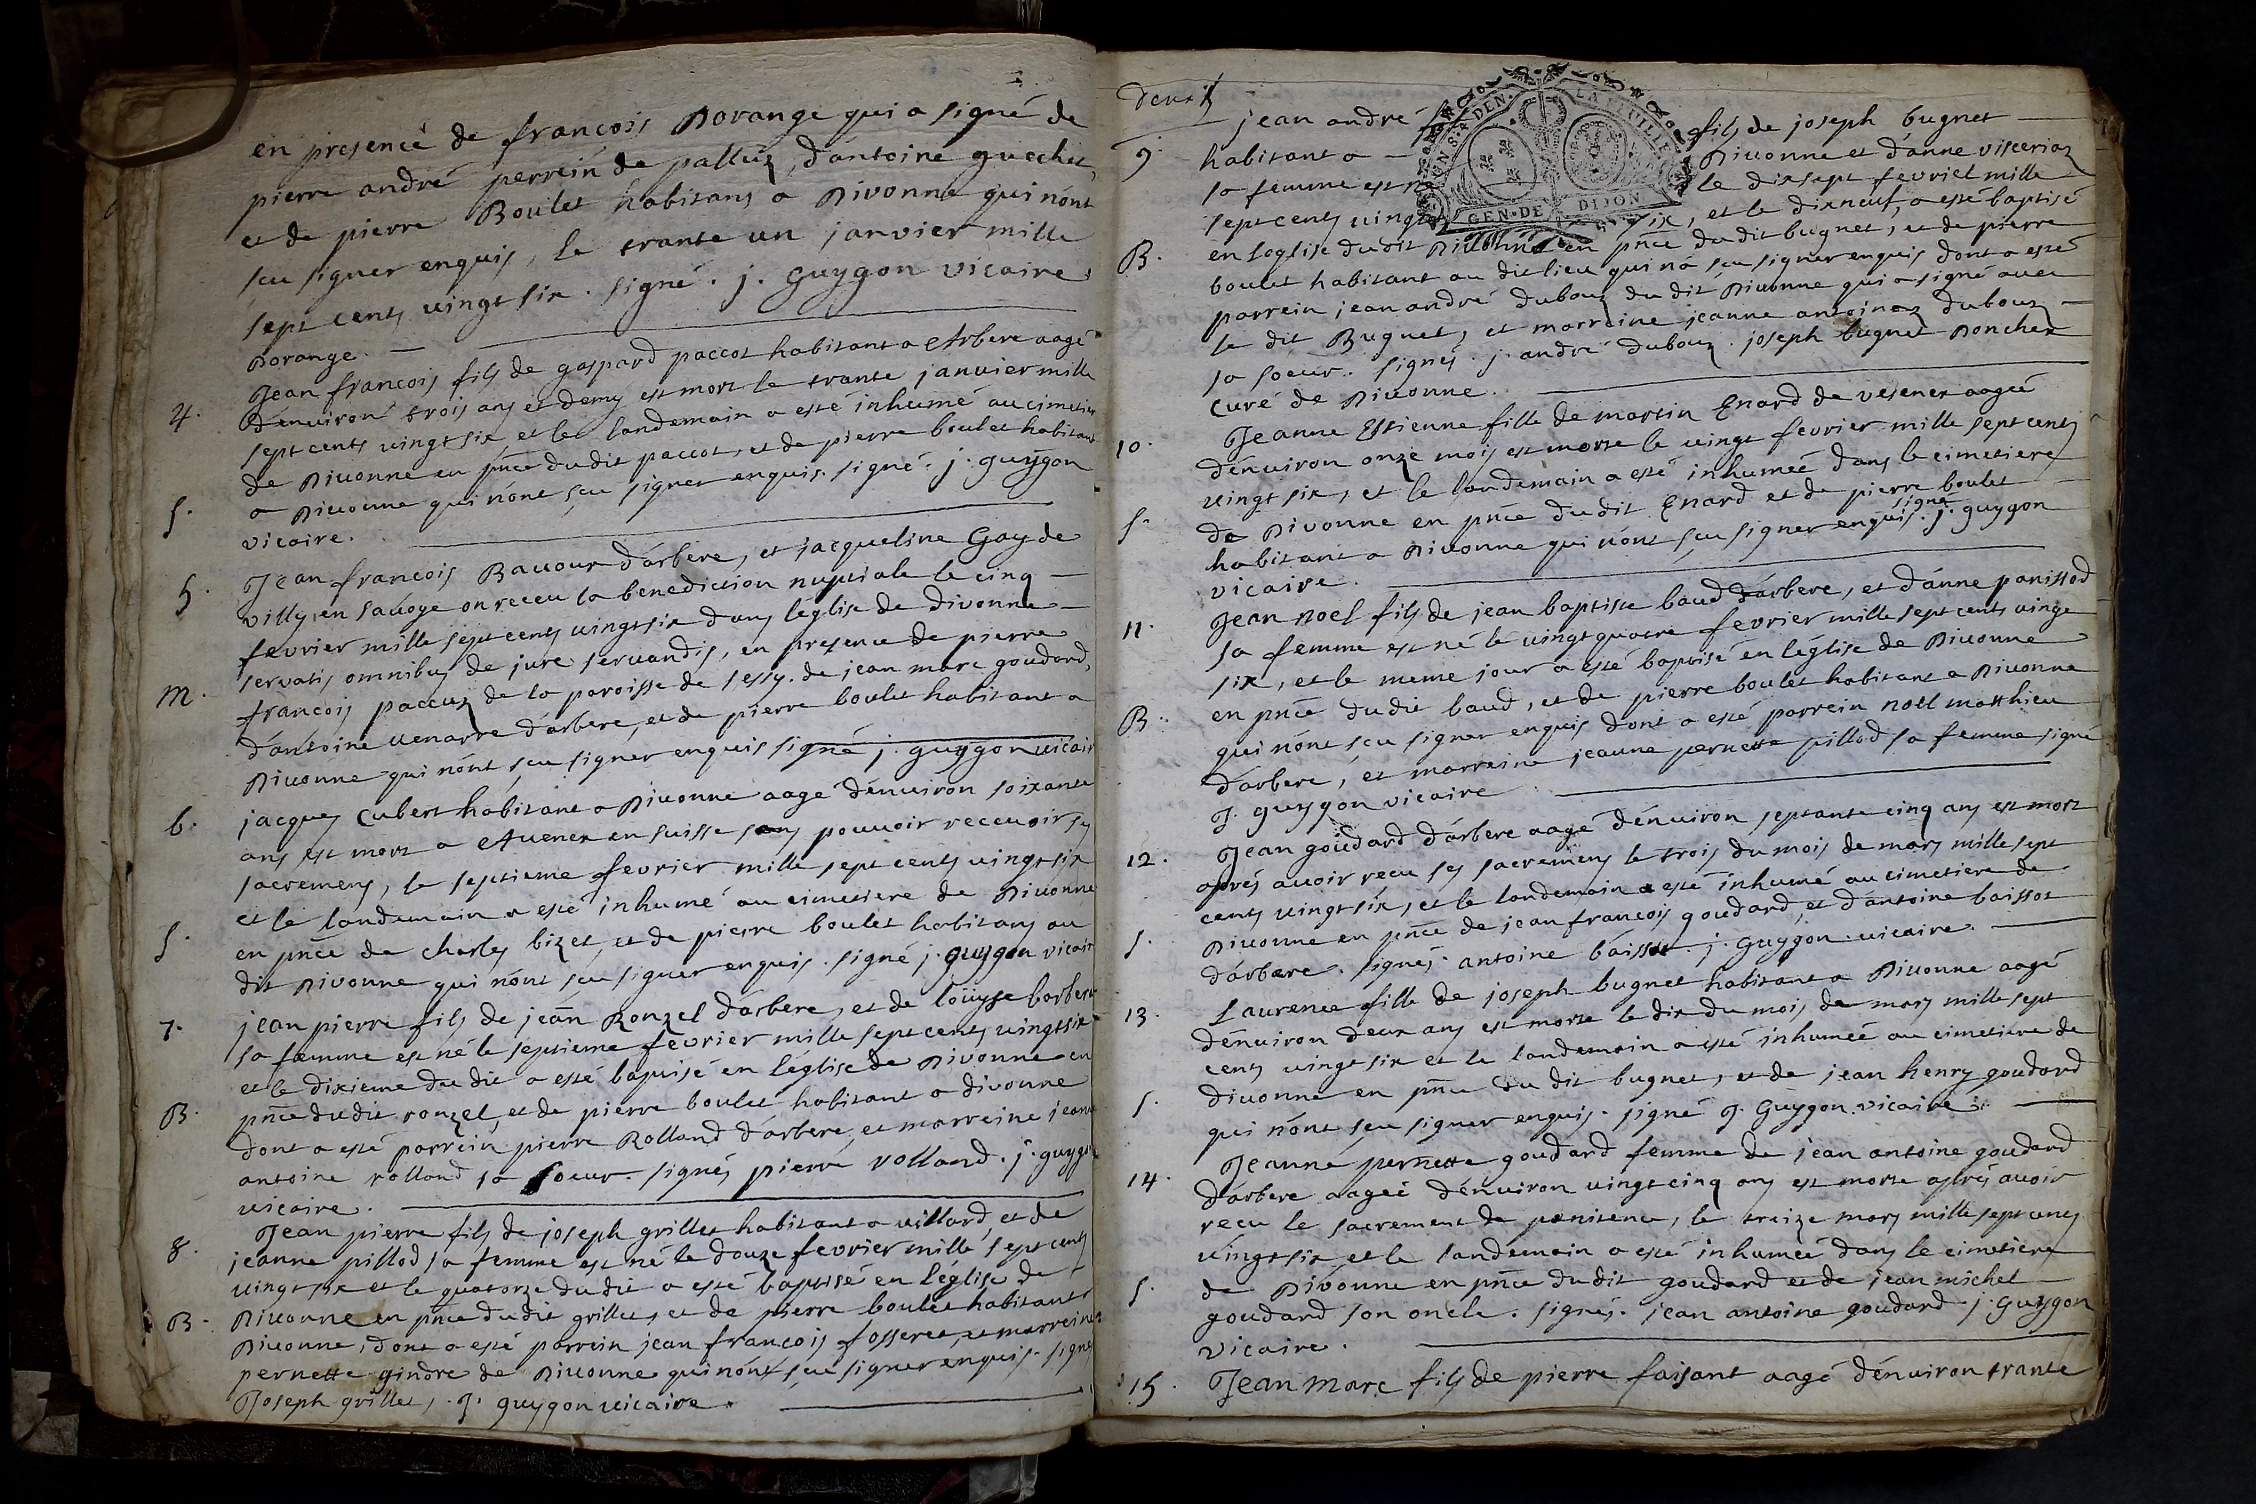 en presence de francois Dorange qui a signé de
pierre andré perrein de palluz, d'antoine guechet
et de pierre Boulet habitans a Divonne qui n'ont
sçu signer enquis, le trante un janvier mille
sept cents vingt six. signé. j. guygon vicaire,
Dorange.
4. Jean francois fils de gaspard paccot habitant a Arbere aagé
d'environ trois ans et demy est mort le trante janvier mille
sept cents vingt six et le landemain a esté inhumé au cimetier
de Divonne en pñce dudit paccot, et de pierre boulet habitant
S. a Divonne qui n'ont sçu signer enquis. signé. j. guygon
vicaire.
5. Jean francois Bavoux d'arbere, et jacqueline Gay de
villy, en savoye on receu la benediction nuptiale le cinq
fevrier mille sept cents vingt six dans l'église de divonne
servatis omnibus de jure servandis, en presence de pierre
M. francois paccuz de la paroisse de sessy. de jean marc goudard,
d'antoine venarre d'arbere, et de pierre boulet habitant a
Divonne qui n'ont sçu signer enquis signé j. guygon vicair
6. jacques Cubert habitant a Divonne aagé d'environ soixante
ans est mort a Avenex en suisse sans pouvoir recevoir ses
sacremens, le septieme fevrier mille sept cents vingt six
et le landemain a esté inhumé au cimetiere de Divonne
S. en pñce de charles bizet, et de pierre boulet habitans au
dit Divonne qui n'ont sçu signer enquis. signé j. guygon vicair
7. jean pierre fils de jean Ronzel d'arbere, et de loüyse barbere
sa femme est né le septieme fevrier mille sept cents vingt six
et le dixieme du dit a esté baptisé en l'église de Divonne en
B. pñce dudit ronzel, et de pierre boulet habitant a divonne
dont a esté parrein pierre Rolland d'arbere, et marreine jeanne
antoine rolland sa soeur. signés pierre rolland. j. guygon
vicaire.
8. Jean pierre fils de joseph grillet habitant a villard, et de
jeanne pillod sa femme est né le douze fevrier mille sept cents
vingt six et le quatorze du dit a esté baptisé en l'église de
B. Divonne en pñce du dit grillet, et de pierre boulet habitant
Divonne, dont a esté parrein jean francois fosseret, et marreine
pernette gindre de Divonne qui n'ont sçu signer enquis. signé
Joseph grillet, J. guygon vicaire.
deux
jean andré fils de joseph bugnet
9. habitant a Divonne et d'anne
sa femme est né le dixsept fevriel mille
sept cents vingt six, et le dixneuf, a esté baptisé
B. en leglise dudit Divonne en pñce du dit bugnet, et de pierre
boulet habitant au dit lieu qui n'a sçu signer enquis dont a esté
parrein jean andré dubouz du dit Divonne qui a signé avec
le dit Bugnet, et marraine jeanne antoinaz dubouz
sa soeur. signés. j. andré dubouz. joseph bugnet Poncher
curé de Divonne.
GEN·DE DIJON
10. Jeanne Estienne fille de martin Enard de vesenex aagée
d'environ onze mois est morte le vingt fevrier mille sept cents
vingt six, et le landemain a esté inhumée dans le cimetiere
S. de Divonne en pñce du dit Enard et de pierre boulet
habitant a Divonne qui n'ont sçu signer enquis. signé j. guygon
vicaire.
11. Jean noel fils de jean baptiste baud d'arbere, et d'anne panissod
sa femme est né le vingt quatre fevrier mille sept cents vingt
six, et le meme jour a esté baptisé en l'église de Divonne
B. en pñce du dit baud, et de pierre boulet habitant a Divonne
qui n'ont sçu signer enquis dont a esté parrein noel matthieu
d'arbere, et marreine jeanne pernette pillod sa femme signé
J. guygon vicaire
12. Jean goudard d'arbere aagé d'environ septante cinq ans est mort
après avoir recu ses sacremens le trois du mois de mars mille sept
cents vingt six, et le landemain a esté inhumé au cimetiere de
S. Divonne en pñce de jean francois goudard, et d'antoine baissot
d'arbere. signés. antoine baissot. j. guygon. vicaire.
13. Laurence fille de joseph bugnet habitant a Divonne aagé
d'environ deux ans est morte le dix du mois de mars mille sept
cents vingt six et le landemain a esté inhumée au cimetiere de
S. divonne en pñce du dit bugnet, et de jean henry goudard
qui n'ont sçu signer enquis. signé J. guygon vicaire.
14. Jeanne pernette goudard femme de jean antoine goudard
d'arbere aageé d'environ vingt cinq ans est morte après avoir
recu le sacrement de penitence, le treize mars mille sept cents
vingt six et le landemain a esté inhumée dans le cimetiere
S. de Divonne en pñce du dit goudard et de jean michel
goudard son oncle. signés. jean antoine goudard j. guygon
vicaire.
15. Jean Marc fils de pierre faisant aagé d'environ trante